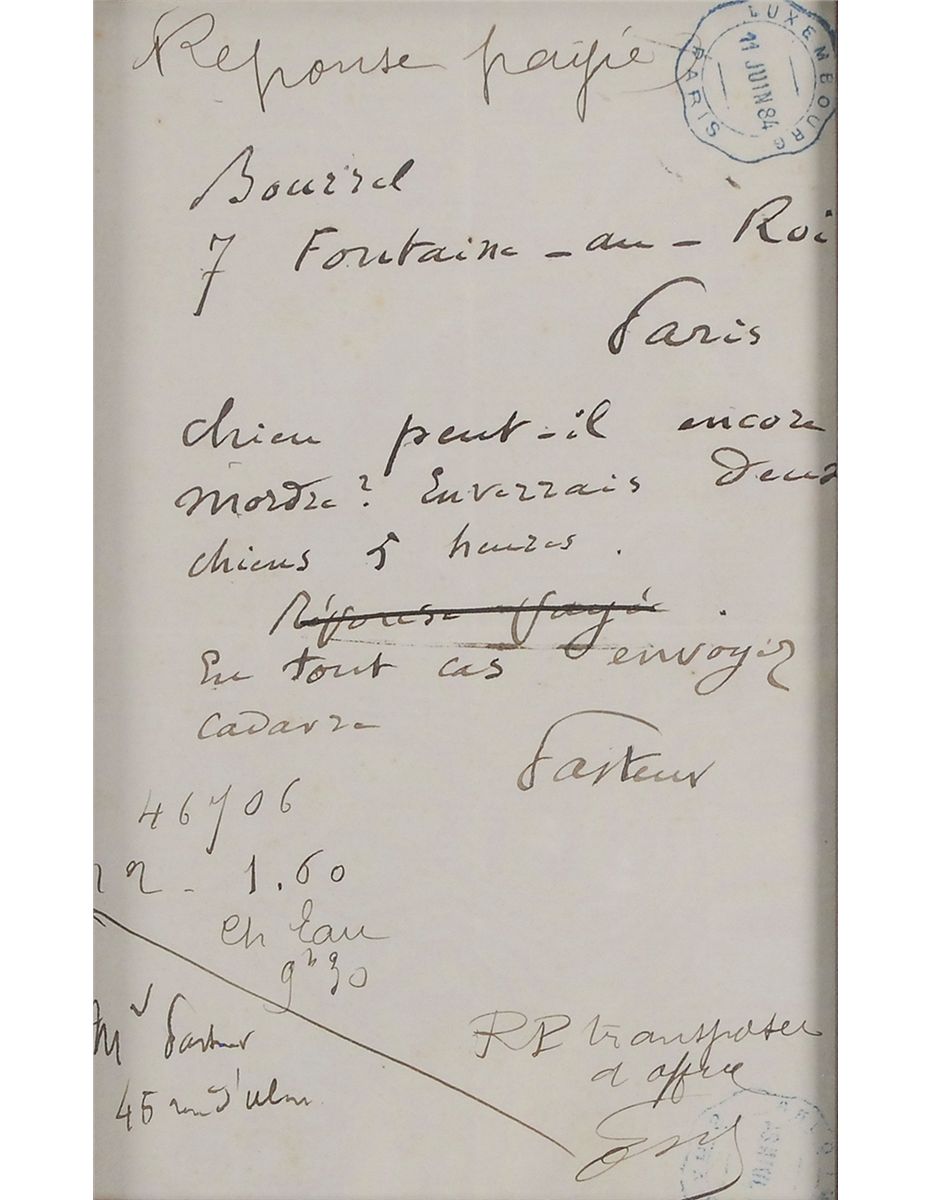 Reponse payée
LUXEMBOURG
PARIS
11 JUIN 84
Bourrel
7 Fontaine-au-Roi
Paris
chien peut-il encore
mordre? Enverrais deux
chiens 5 heures.
Réponse payée.
En tout cas envoyez
cadavre
Pasteur
46706
1.60
9h30
Mr Pasteur
45 rue d'Ulm
RP transposée
d'office